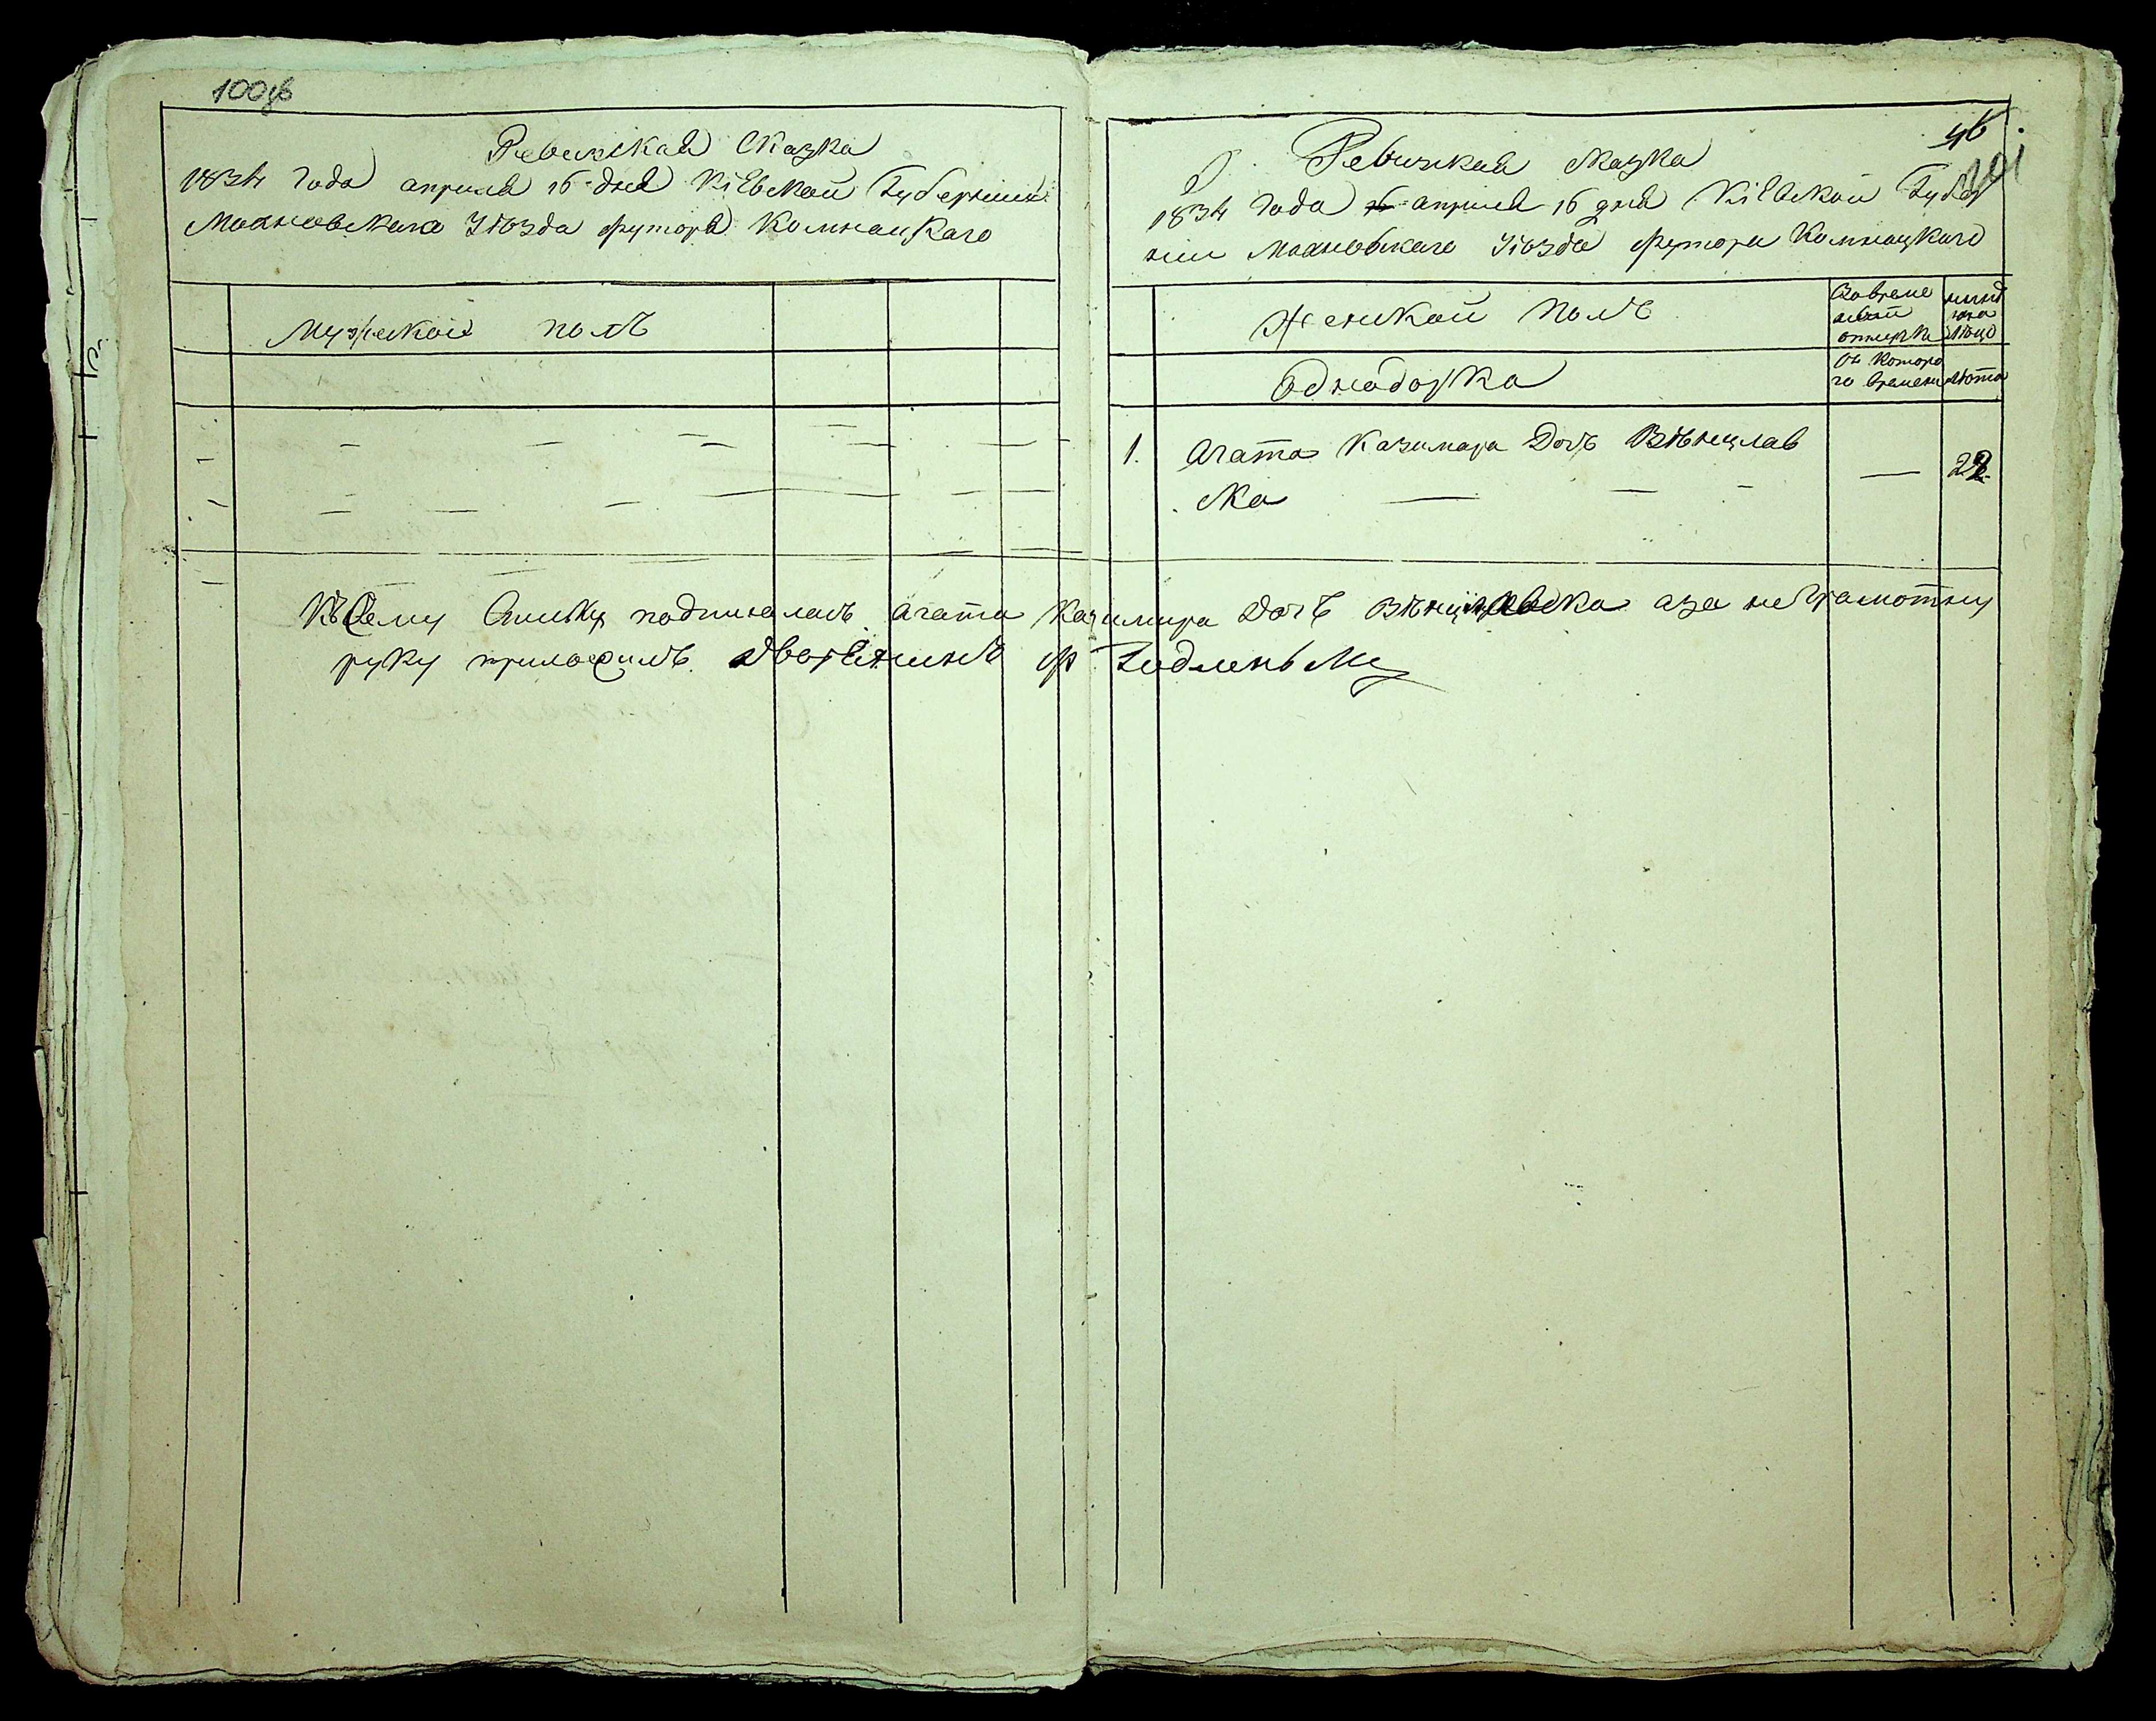 100об
Ревизская Сказка
1834 года апреля 16 дня Кіевской Губернии
Махновскаго Уюзда футора Комнацкаго
Мужеской полъ
46.
101
Ревизская сказка
1834 года апреля 16 дня Кіевской Губер
нии Махновскаго Уюзда футора Комнацкаго
Женской полъ
Вовреме
отлучке
нынѣ
на лицо
Однодворка
Съ которо
го времени
лѣта
1. Агата Казимира Дочь Вѣнцлав
ска
28
Къ Сему подписалась Агата Казимира Дочь Вѣнцлавска аза неграмотну
руку приложилъ Дворенинъ Ф